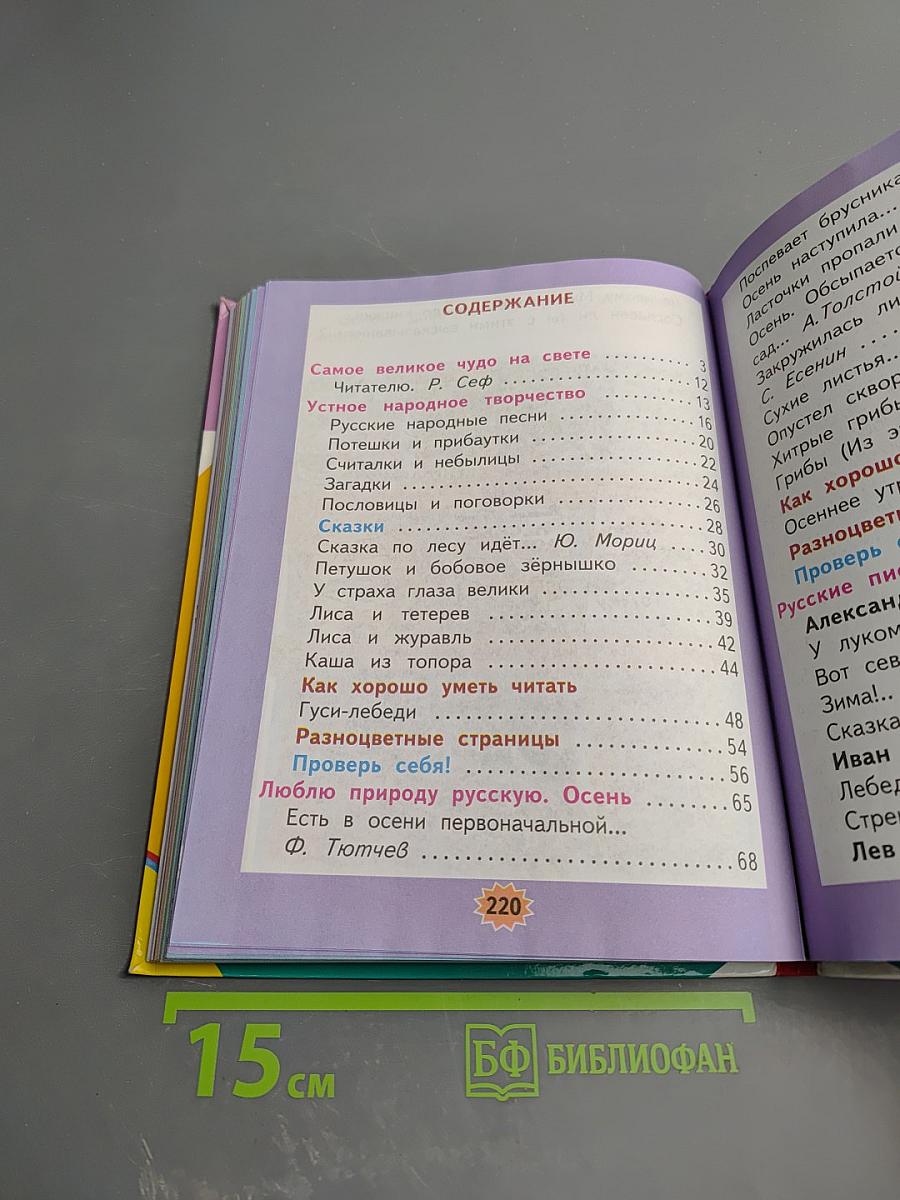 СОДЕРЖАНИЕ
Самое великое чудо на свете ........ 3
Читателю. Р. Сеф ........ 12
Устное народное творчество ........ 13
Русские народные песни ........ 16
Потешки и прибаутки ........ 20
Считалки и небылицы ........ 22
Загадки ........ 24
Пословицы и поговорки ........ 26
Сказки ........ 28
Сказка по лесу идёт... Ю. Мориц .... 30
Петушок и бобовое зёрнышко ........ 32
У страха глаза велики ........ 35
Лиса и тетерев ........ 39
Лиса и журавль ........ 42
Каша из топора ........ 44
Как хорошо уметь читать
Гуси-лебеди ........ 48
Разноцветные страницы ........ 54
Проверь себя! ........ 56
Люблю природу русскую. Осень ........ 65
Есть в осени первоначальной...
Ф. Тютчев ........ 68
220
Поспевает брусника
Осень наступила...
Ласточки пропали
Осень. Обсыпается
сад... А. Толстой
Закружилась
С. Есенин ....
Сухие листья...
Опустел
Хитрые грибы
Грибы (Из
Как хорошо
Осеннее
Проверь
Русские
У
Вот
Зима!..
Сказка
Иван
Лев
15 см
БФ БИБЛИОФАН